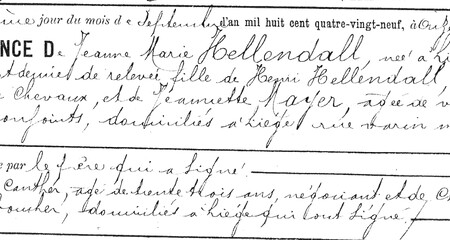 ème jour du mois de Septembre d'an mil huit cent quatre-vingt-neuf, à
NCE De Jeanne Marie Hellendall, née à
et demie de relevée fille de Henri Hellendall,
Chevaux, et de Jeannette Mayer, agée de
conjoints, domiciliés à Liége rue
par le père qui a signé.
agé de trente trois ans, négociant et de
domiciliés à Liége qui ont signé.